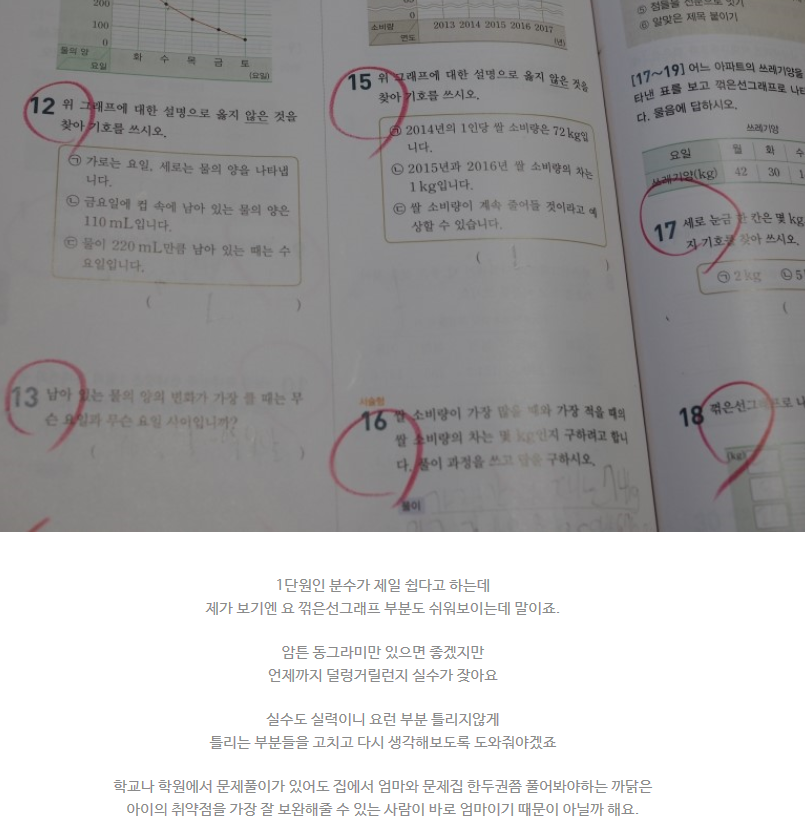 200
100
0
물의 양
요일
화 수 목 금 토
(요일)
12 위 그래프에 대한 설명으로 옳지 않은 것을
찾아 기호를 쓰시오.
㉠ 가로는 요일, 세로는 물의 양을 나타냅
니다.
㉡ 금요일에 컵 속에 남아 있는 물의 양은
110 mL입니다.
㉢ 물이 220 mL만큼 남아 있는 때는 수
요일입니다.
( )
13 남아 있는 물의 양의 변화가 가장 클 때는 무
슨 요일과 무슨 요일 사이입니까?
( )
0
소비량
연도
2013 2014 2015 2016 2017
(년)
15 위 그래프에 대한 설명으로 옳지 않은 것을
찾아 기호를 쓰시오.
㉠ 2014년의 1인당 쌀 소비량은 72 kg입
니다.
㉡ 2015년과 2016년 쌀 소비량의 차는
1 kg입니다.
㉢ 쌀 소비량이 계속 줄어들 것이라고 예
상할 수 있습니다.
( )
서술형
16 쌀 소비량이 가장 많을 때와 가장 적을 때의
쌀 소비량의 차는 몇 kg인지 구하려고 합니
다. 풀이 과정을 쓰고 답을 구하시오.
풀이
⑤ 점들을 선분으로 잇기
⑥ 알맞은 제목 붙이기
[17~19] 어느 아파트의 쓰레기양을
타낸 표를 보고 꺾은선그래프로 나타
다. 물음에 답하시오.
쓰레기양
요일 월 화 수
쓰레기양(kg) 42 30
17 세로 눈금 한 칸은 몇 kg
지 기호를 찾아 쓰시오.
㉠ 2 kg ㉡ 5
(
18 꺾은선그래프로 나
(kg)
1단원인 분수가 제일 쉽다고 하는데
제가 보기엔 요 꺾은선그래프 부분도 쉬워보이는데 말이죠.
암튼 동그라미만 있으면 좋겠지만
언제까지 덜렁거릴런지 실수가 잦아요
실수도 실력이니 요런 부분 틀리지않게
틀리는 부분들을 고치고 다시 생각해보도록 도와줘야겠죠
학교나 학원에서 문제풀이가 있어도 집에서 엄마와 문제집 한두권쯤 풀어봐야하는 까닭은
아이의 취약점을 가장 잘 보완해줄 수 있는 사람이 바로 엄마이기 때문이 아닐까 해요.